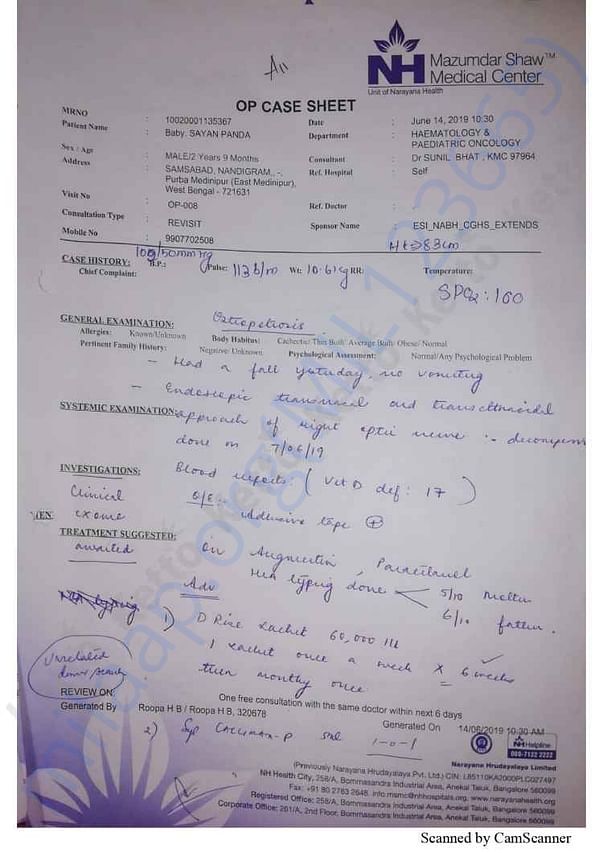 All
NH Mazumdar Shaw™
Medical Center
Unit of Narayana Health
OP CASE SHEET
MRNO : 10020001135367 Date : June 14, 2019 10:30
Patient Name : Baby. SAYAN PANDA Department : HAEMATOLOGY &
PAEDIATRIC ONCOLOGY
Sex / Age : MALE/2 Years 9 Months Consultant : Dr SUNIL BHAT , KMC 97964
Address : SAMSABAD, NANDIGRAM,, -, Ref. Hospital : Self
Purba Medinipur (East Medinipur),
West Bengal - 721631
Visit No : OP-008 Ref. Doctor : .
Consultation Type : REVISIT Sponsor Name : ESI_NABH_CGHS_EXTENDS
Mobile No : 9907702508
Ht 83cm
CASE HISTORY: B.P.: 100/50mmHg Pulse: 113 b/m Wt: 10.61kg RR: Temperature:
Chief Complaint:
SPO2: 100
GENERAL EXAMINATION: Osteopetrosis
Allergies: Known/Unknown Body Habitus: Cachectic/ Thin Built/ Average Built/ Obese/ Normal
Pertinent Family History: Negative/ Unknown Psychological Assessment: Normal/Any Psychological Problem
- Had a fall yesterday, no vomiting
- Endoscopic transnasal and transethmoidal
SYSTEMIC EXAMINATION: approach of right optic nerve :-
done on 7/06/19
INVESTIGATIONS: Blood reports: ( Vit D def: 17 )
Clinical O/E: Adhesive tape +
exome
TREATMENT SUGGESTED:
awaited on Augmentin, Paracetamol
HLA typing done 5/10 mother
6/10 father.
Adv
1) D Rise sachet 60,000 IU
1 sachet once a week x 6 weeks
then monthly once
Unrelated
donor search
REVIEW ON: One free consultation with the same doctor within next 6 days
Generated By Roopa H B / Roopa H B, 320678 Generated On 14/06/2019 10:30 AM
2) Syp 5ml 1-0-1
NH Helpline
Narayana Hrudayalaya Limited
(Previously Narayana Hrudayalaya Pvt. Ltd.) CIN: L85110KA2000PLC027497
NH Health City, 258/A, Bommasandra Industrial Area, Anekal Taluk, Bangalore 560099
Fax: +91 80 2783 2648 info.msmc@nhhospitals.org, www.narayanahealth.org
Registered Office: 258/A, Bommasandra Industrial Area, Anekal Taluk, Bangalore 560099
Corporate Office: 261/A, 2nd Floor, Bommasandra Industrial Area, Anekal Taluk, Bangalore 560099
Scanned by CamScanner